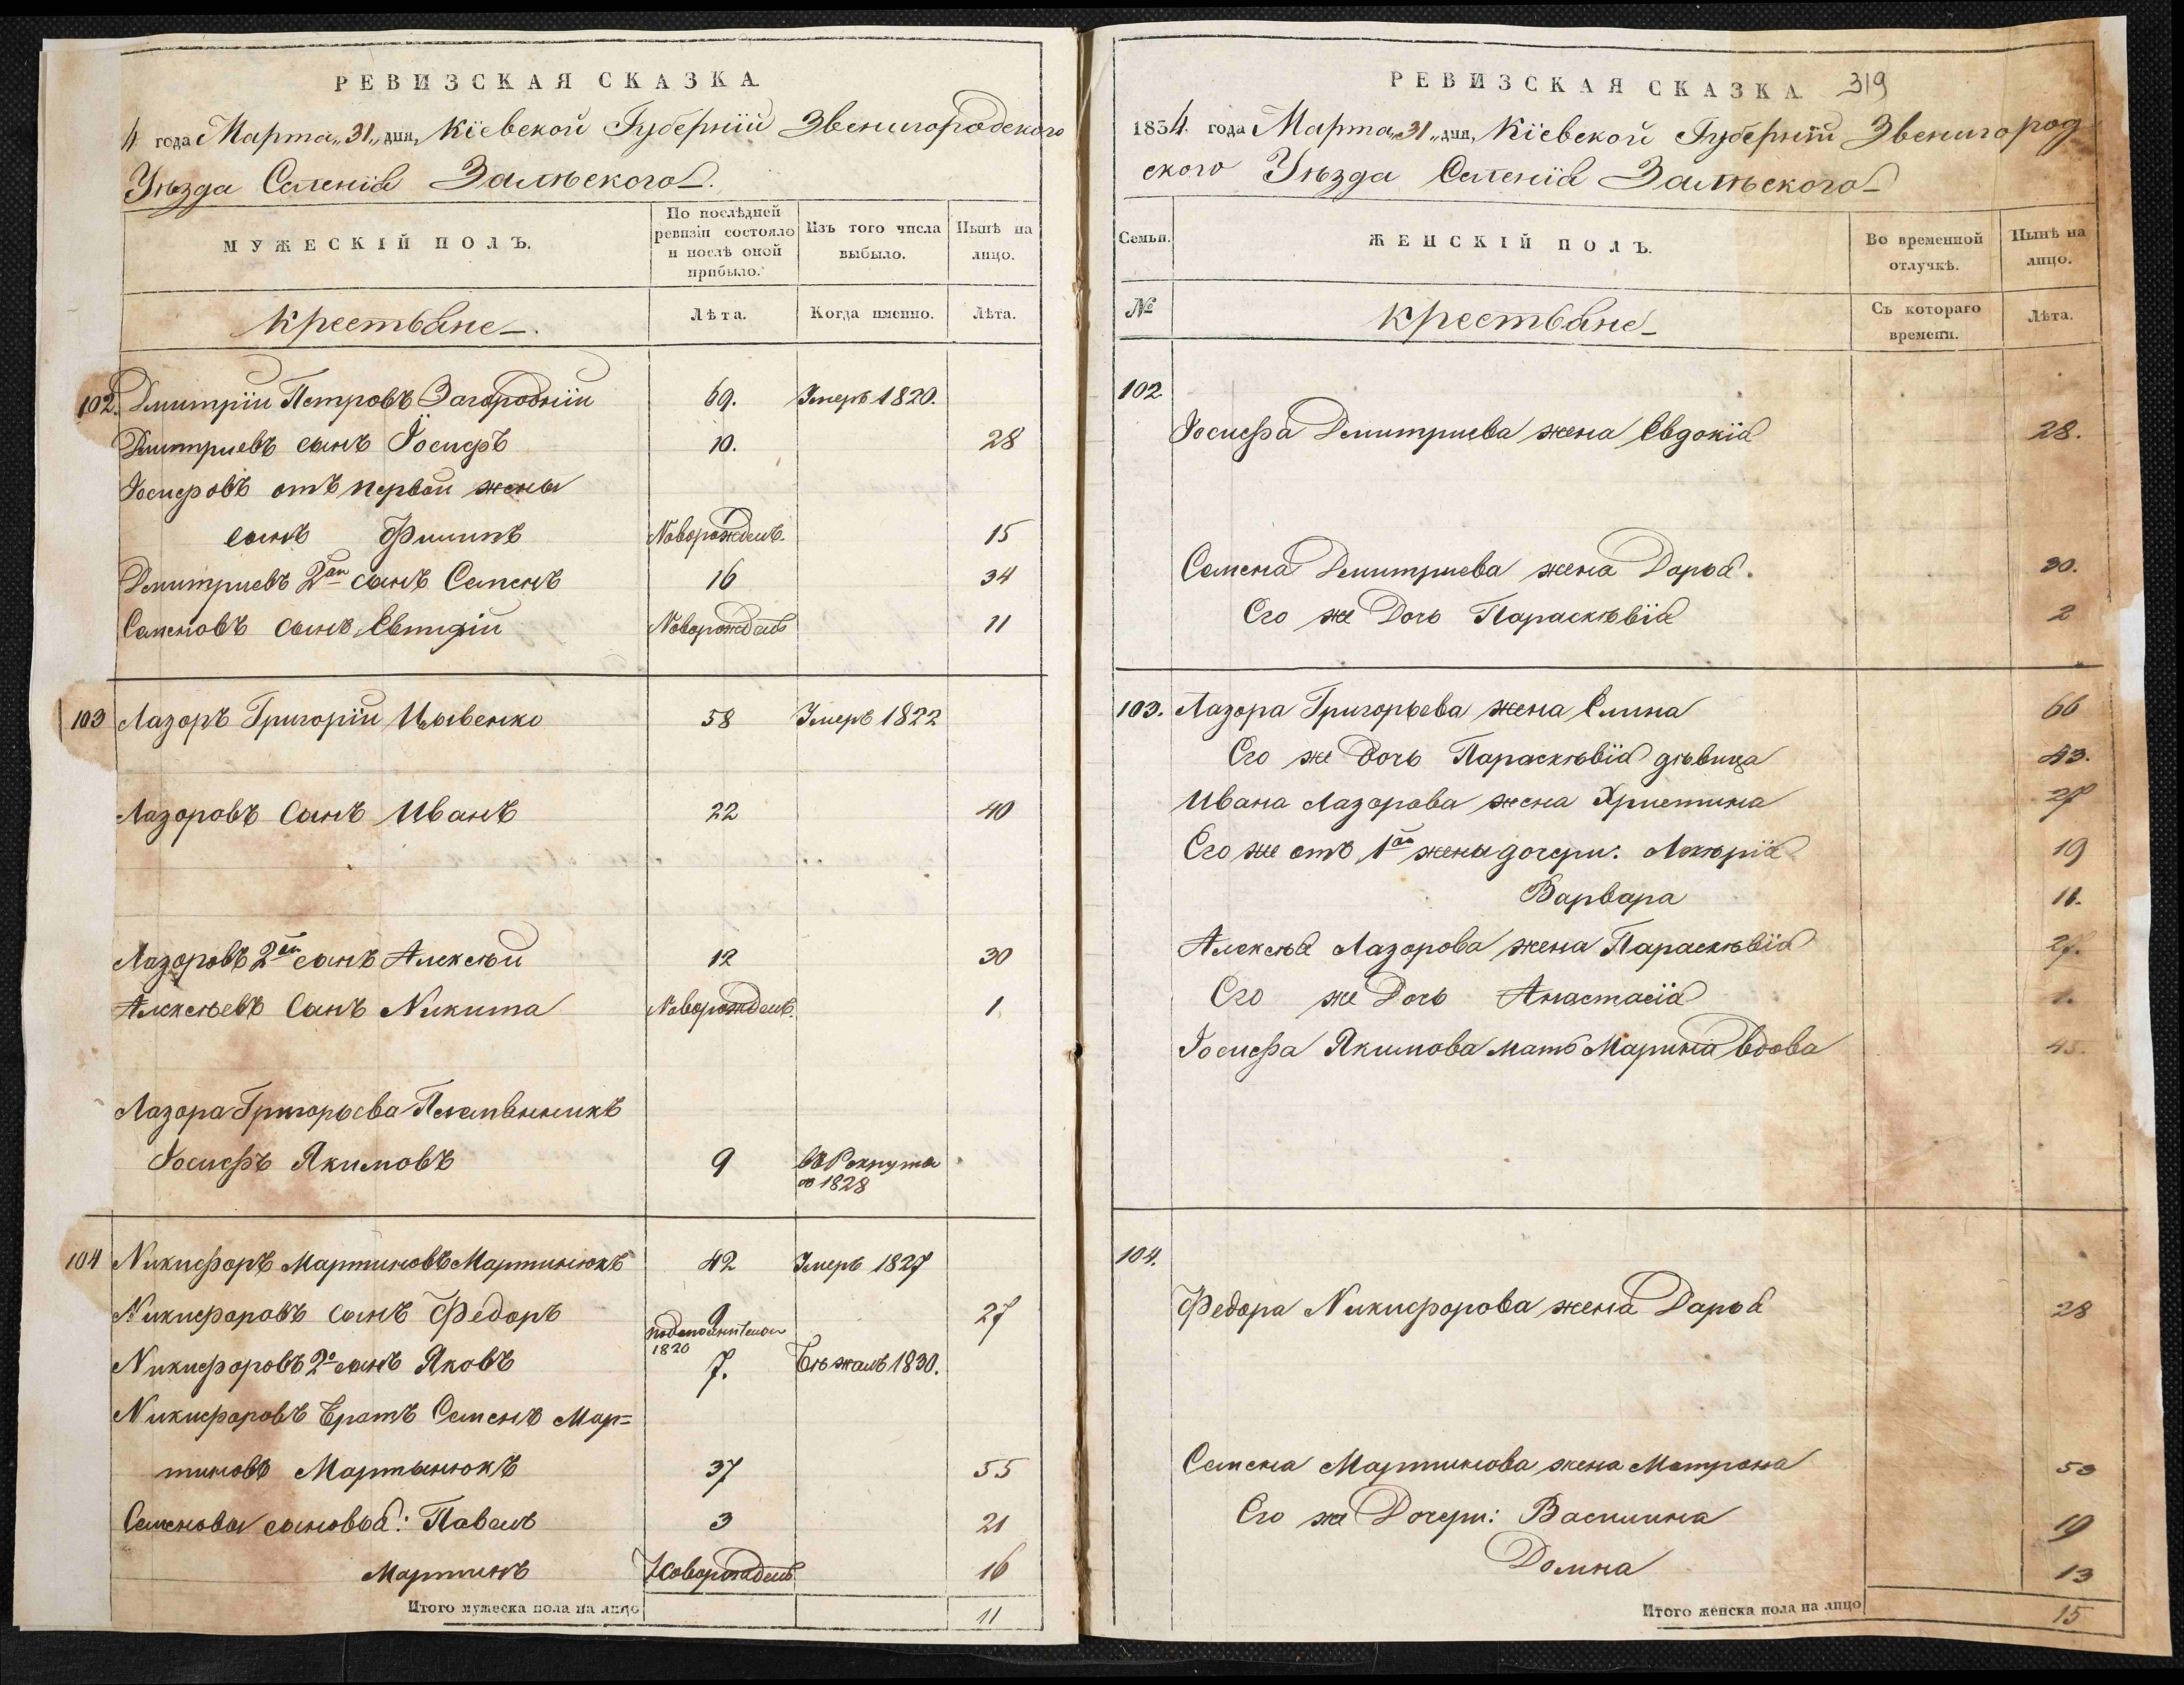 РЕВИЗСКАЯ СКАЗКА
4 года Марта „31„ дня, Кіевской Губерніи Звенигородского
Уѣзда Селенія Залѣского
МУЖЕСКІЙ ПОЛЪ.
По послѣдней ревизіи состояло и послѣ оной прибыло.
Изъ того числа выбыло.
Нынѣ на лицо.
крестьяне
Лѣта.
Когда именно.
Лѣта.
102. Дмитрій Петровъ Загородній 69. Умеръ 1820.
Дмитриевъ сынъ Іосифъ 10. 28
Іосифовъ отъ первой жены
сынъ Филипъ Новорожденъ. 15
Дмитриевъ 2ой сынъ Семенъ 16 34
Семеновъ сынъ Евтифій Новорожденъ 11
103 Лазоръ Григорій 58 Умеръ 1822
Лазоровъ Сынъ Иванъ 22 40
Лазоровъ 2ой сынъ Алексѣй 12 30
Алексѣевъ Сынъ Никита Новорожденъ. 1
Лазора Григорьева Племянникъ
Іосифъ Якимовъ 9 въ Рекруты
в 1828
104 Никифоръ Мартиновъ Мартинюкъ 42 Умеръ 1827
Никифоровъ сынъ Федоръ 9 27
1820
Никифоровъ 2о сынъ Яковъ 7. Бѣжалъ 1830.
Никифоровъ Братъ Семенъ Мар=
тиновъ Мартынюкъ 37 55
Семеновы сыновья: Павелъ 3 21
Мартинъ Новорожденъ 16
Итого мужеска пола на лицо 11
РЕВИЗСКАЯ СКАЗКА 319
1834 года Марта „31„ дня, Кіевской Губерніи Звенигород
ского Уѣзда Селенія Залѣского
Семьи.
ЖЕНСКІЙ ПОЛЪ.
Во временной отлучкѣ.
Нынѣ на лицо.
№
крестьяне
Съ котораго времени.
Лѣта.
102.
Іосифа Дмитриева жена Евдокія 28.
Семена Дмитриева жена Дарья. 30.
Его же Дочь Параскѣвія 2
103. Лазора Григорьева жена Елина 66
Его же дочь Параскѣвія дѣвица 43.
Ивана Лазорова жена Христина 27
Его же отъ 1ой жены дочери: Лукѣрія 19
Варвара 11.
Алексѣя Лазорова жена Параскѣвія 27.
Его же Дочь Анастасія 1.
Іосифа Якимова мать Марина вдова 45.
104.
Федора Никифорова жена Дарья 28
Семена Мартинова жена Матрона 50
Его же Дочери: Василина 19
Домна 13
Итого женска пола на лицо 15